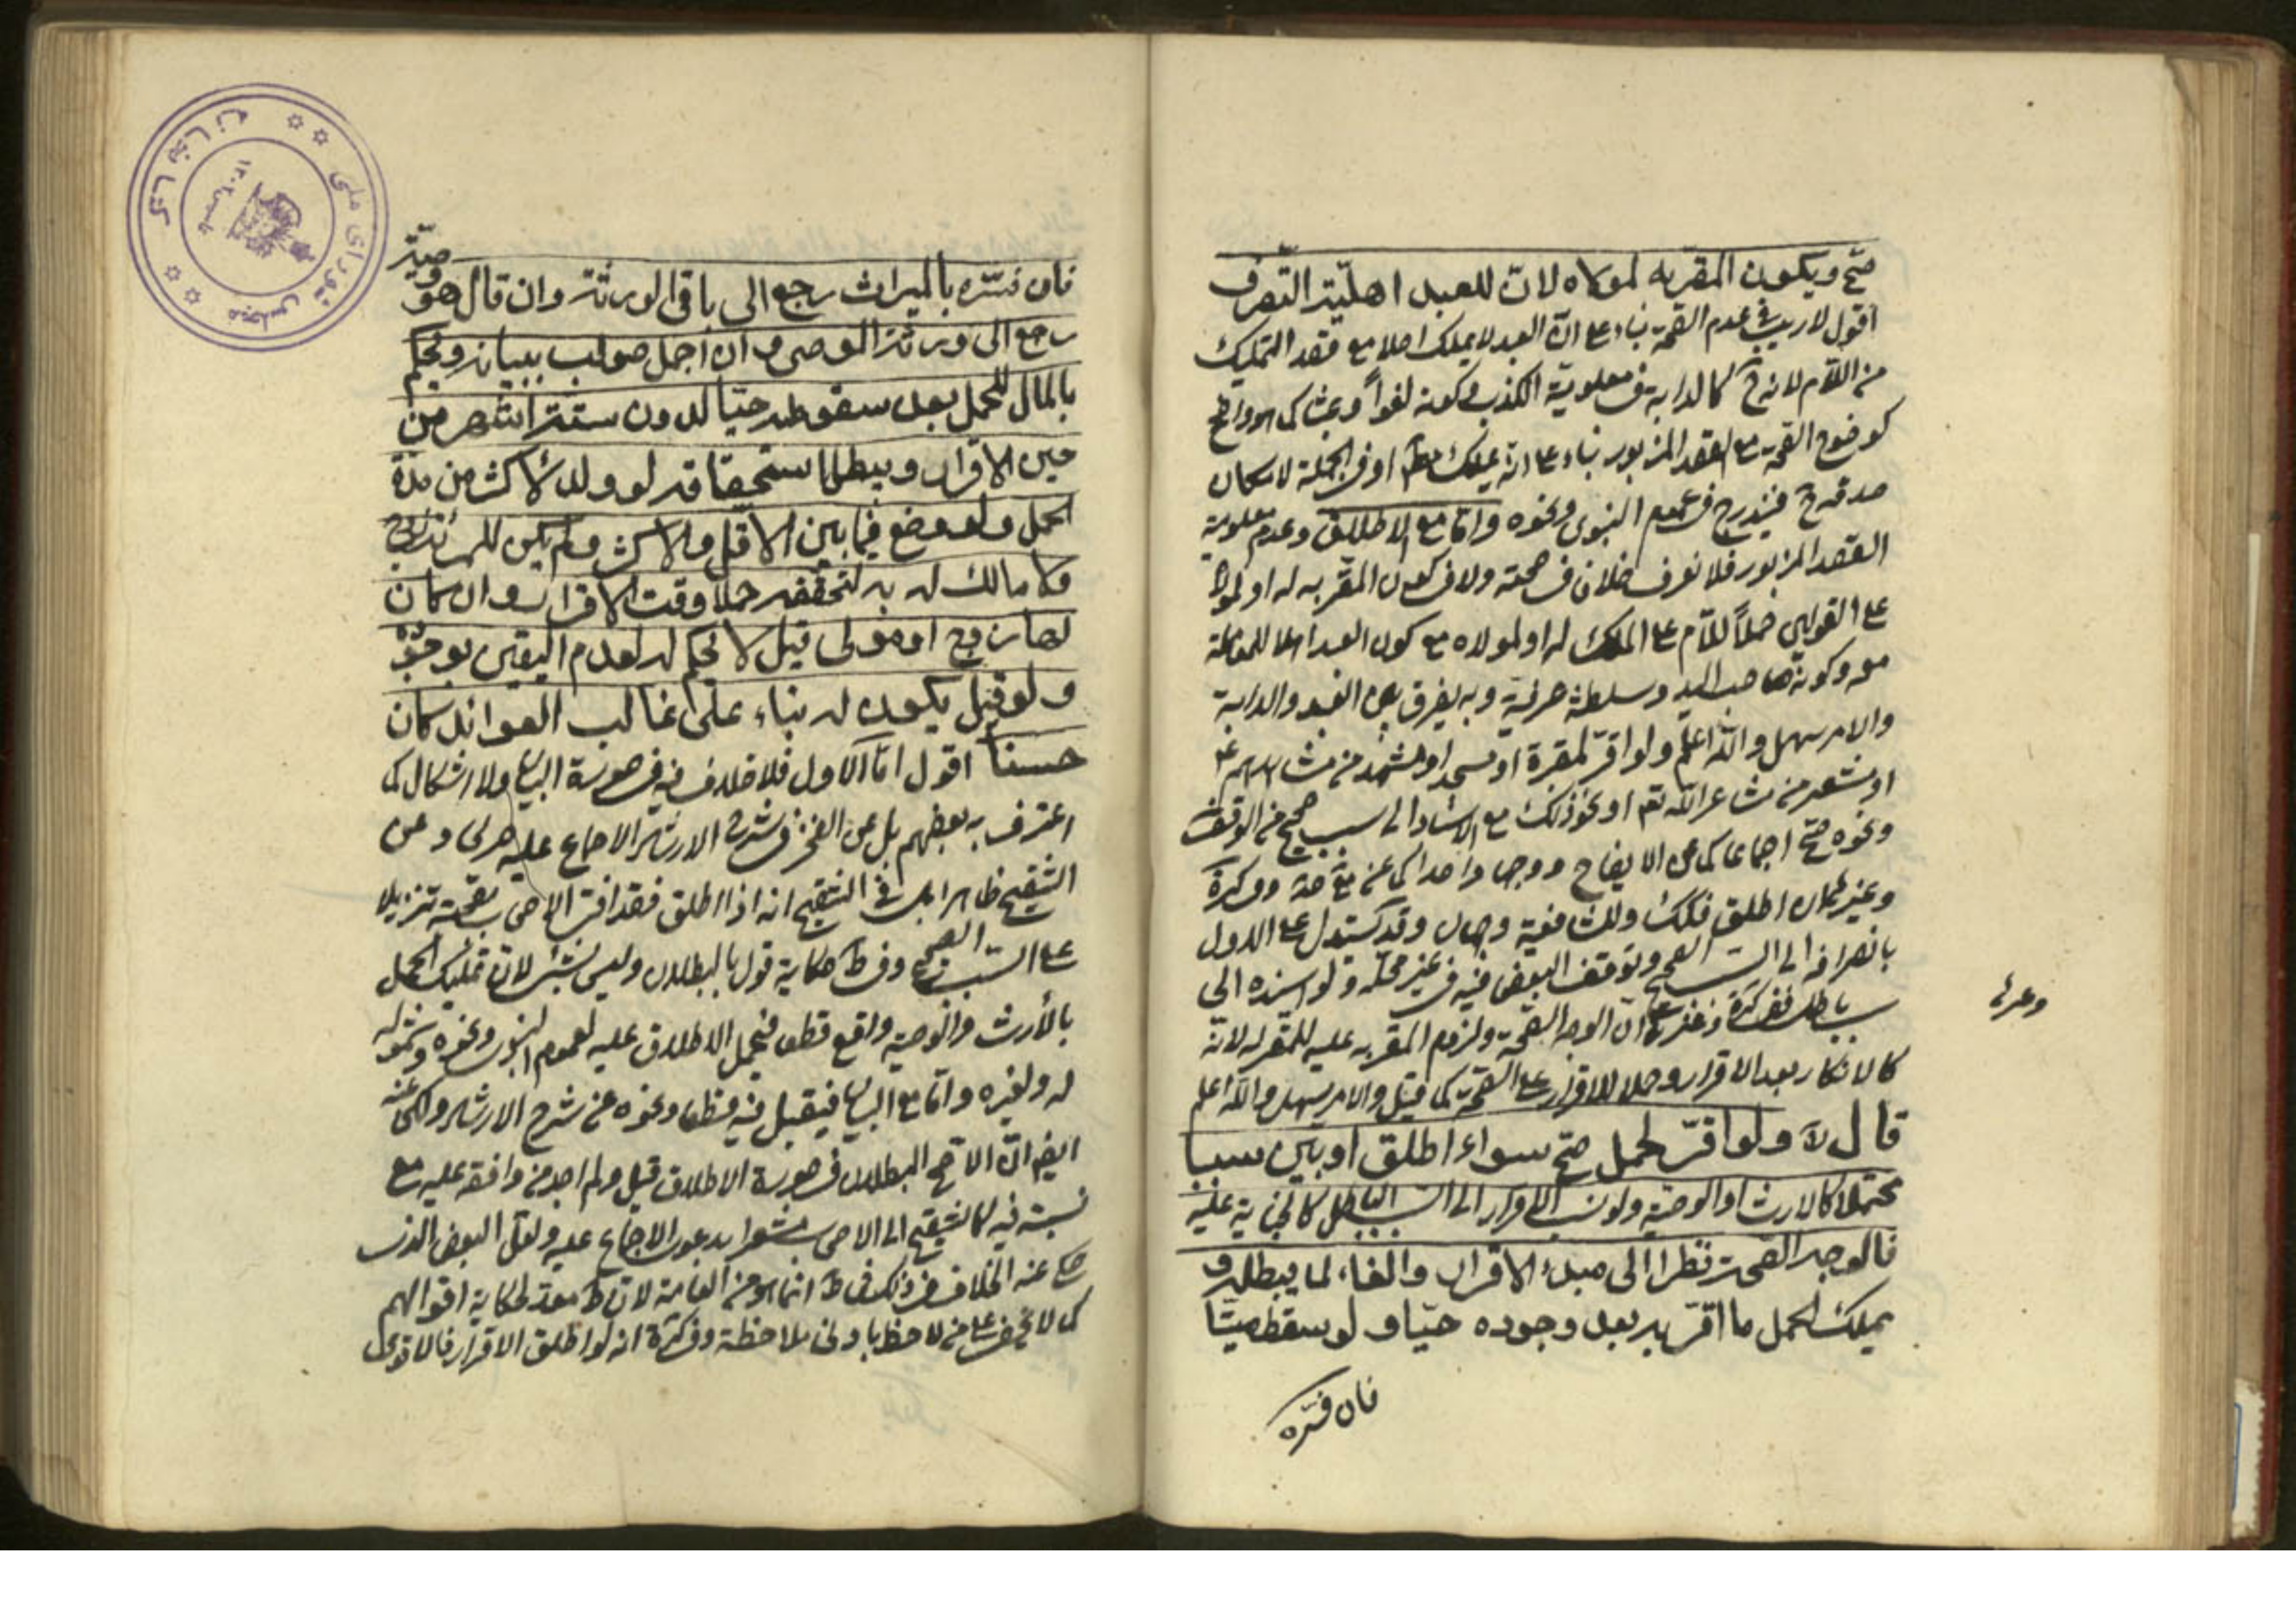 صح ويكون المقر به لمولاه لان للعبد اهلية التصرف
اقول لا ريب في عدم الصحة بناء على ان العبد لا يملك اصلا مع قصد التمليك
من اللام لانه ح كالدابة في معلومية الكذب وكونه لغواً وعبثا كما هو واضح
كوضوح الصحة مع القصد المزبور بناء على انه يملك مط او في الجملة لامكان
صدقه ح فيندرج في عموم النبوى ونحوه واما مع الاطلاق وعدم معلومية
القصد المزبور فلا نعرف خلافا في صحته ولا في كون المقر به له او لمولاه
على القولين حملاً للام على الملك له او لمولاه مع كون العبد اهلا للمعاملة
معه وكونه صاحب اليد وسلطنة عرفية وبه يفرق بين العبد والدابة
والامر سهل والله اعلم ولو اقر لمقبرة او مسجد او مشهد من مشاهدهم ع
او مشعر من مشاعر الله تعم او نحو ذلك مع الاسناد الى سبب صحيح من الوقف
ونحوه صح اجماعا كما عن الايضاح ووجها واحدا كما عن مع صد وفي كرة
وغيرهما ان اطلق فكك وللشافعية وجهان وقد يستدل على الاول
بانصرافه الى السبب الصحيح وتوقف البعض فيه في غير محله ولو اسنده الى
وعرلي
سبب باطل ففي كرة وغيرها ان الوجه الصحة ولزوم المقر به عليه للمقر له لانه
كالانكار بعد الاقرار وحملا للاقرار على الصحة كما قيل والامر سهل والله اعلم
قال لا ولو اقر لحمل صح سواء اطلق او بين سببا
محتملا كالارث او الوصية ولو نسب الاقرار الى السبب الباطل كالجناية عليه
فالوجه الصحة نظرا الى مبدء الاقرار والغاء لما يبطله و
يملك الحمل ما اقر به بعد وجوده حيا ولو سقط ميتا
فان فسره
فان فسره بالميراث رجع الى باقى الورثة وان قال هو وصية
رجع الى ورثة الموصى وان اجمل طولب ببيانه ويحكم
بالمال للحمل بعد سقوطه حيا لدون ستة اشهر من
حين الاقرار ويبطل استحقاقه لو ولد لاكثر من مدة
الحمل ولو وضع فيما بين الاقل والاكثر ولم يكن للمرئة زوج
ولا مالك له به لتحققه حملا وقت الاقرار وان كان
لها زوج او مولى قيل لا يحكم له لعدم اليقين بوجوده
ولو قيل يكون له بناء على غالب العوائد كان
حسنا اقول اما الاول فلا خلاف فيه في صورة البيان ولا اشكال كما
اعترف به بعضهم بل عن الفخر في شرح الارشاد الاجماع عليه وعن
التنقيح ظاهرا بل في التنقيح انه اذا اطلق فقد افتى الاصحاب بصحته تنزيلا
على السبب الصحيح وفي ط حكاية قول بالبطلان وليس بشئ لان تمليك الحمل
بالأرث والوصية واقع قطعا فيحمل الاطلاق عليه لعموم النبوى ونحوه وشموله
له ولغيره واما مع البيان فيقبل فيه قطعا ونحوه عن شرح الارشاد ولكن عنه
ايضا ان الاصح البطلان في صورة الاطلاق قيل ولم اجد من وافقه عليه مع
نسبته فيه كالتنقيح الى الاصحاب مشعرا بدعوى الاجماع عليه ولعل البعض الذى
حكى عنه الخلاف في ذلك في ط انما هو من العامة لان ط معد لحكاية اقوالهم
كما لا يخفى على من لاحظه بادنى ملاحظة وفي كرة انه لو اطلق الاقرار فالاقوى
كتابخانه
مجلس شوراى ملى